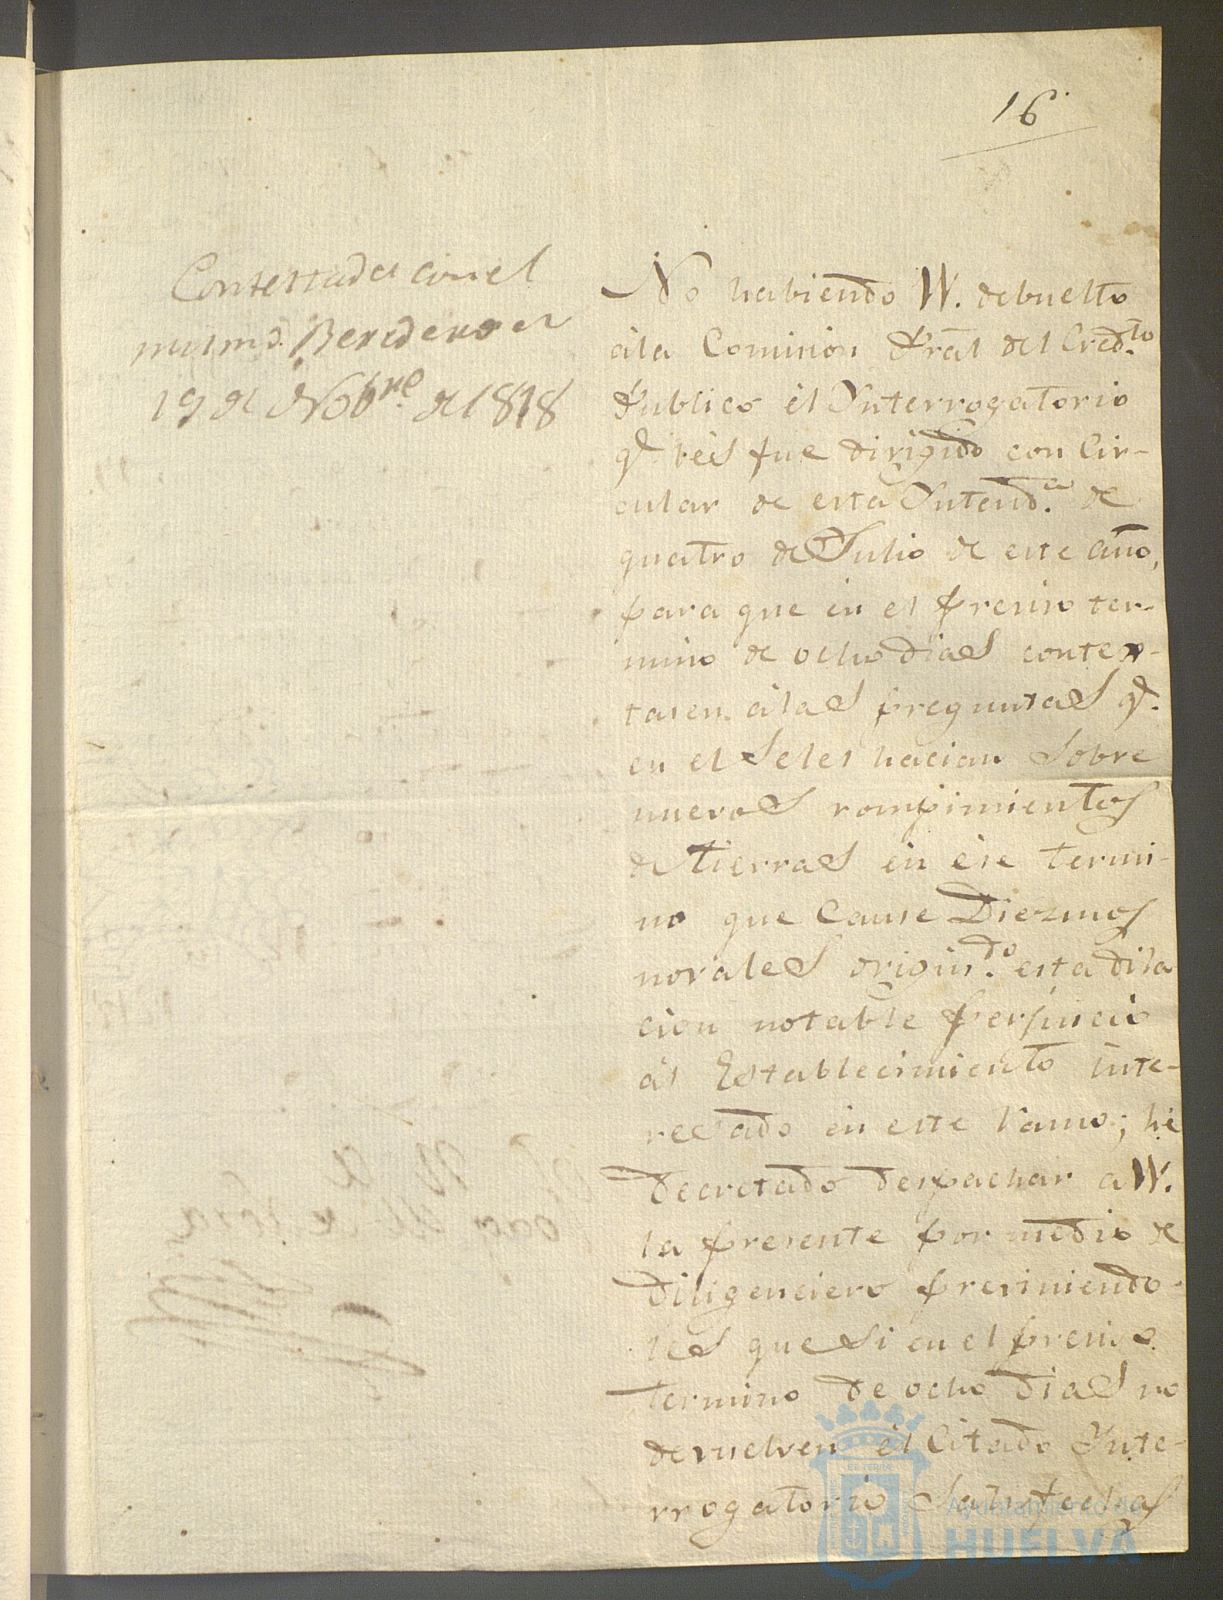 16
Contestada con el
mismo Beredero en
19 de Nobre. de 1818
No habiendo VV. debuelto
á la Comision Pral del Credto.
Publico el Ynterrogatorio
q.e les fue dirigido con Cir-
cular de esta Yntenda. de
quatro de Julio de este año,
para que en el preciso ter-
mino de ocho dias contex-
tasen á las preguntas q.
en el se les hacian sobre
nuevos rompimientos
de tierras en ese termi-
no que cause Diezmos
novales origindo. esta dila
cion notable perjuicio
al Establecimiento inte-
resado en este ramo; hé
decretado despachar a VV.
la presente por medio de
Diligenciero previniendo-
les que si en el preciso
termino de ocho dias no
devuelven el citado Ynte-
rrogatorio satisfechas
Ayuntamiento de
HUELVA